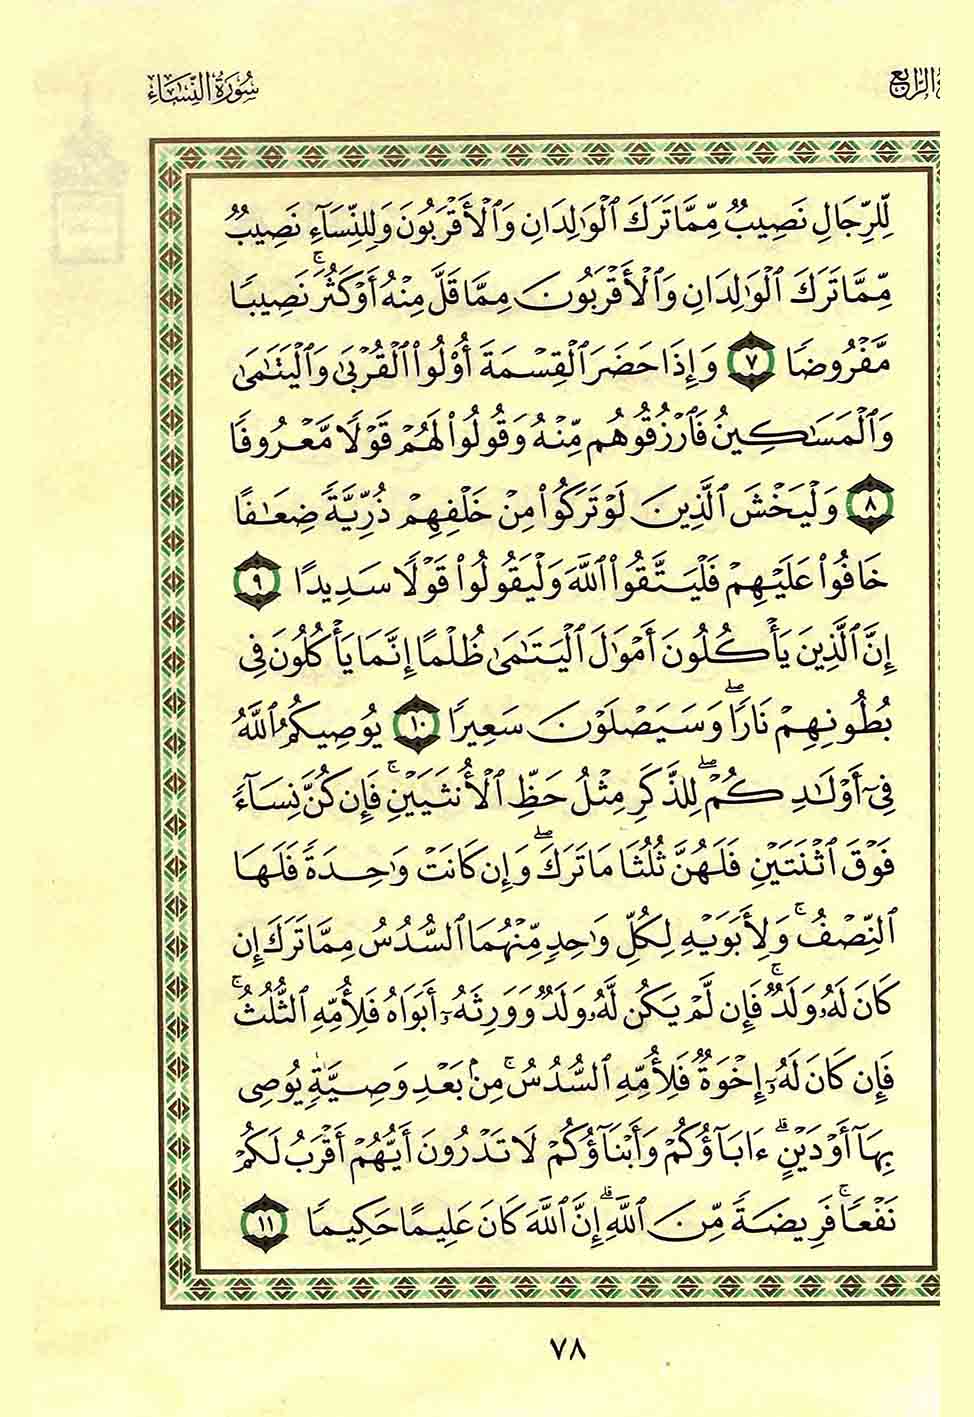 الرَّابِعُ
سُورَةُ النِّسَاءِ
لِّلرِّجَالِ نَصِيبٌ مِّمَّا تَرَكَ ٱلْوَٰلِدَانِ وَٱلْأَقْرَبُونَ وَلِلنِّسَآءِ نَصِيبٌ
مِّمَّا تَرَكَ ٱلْوَٰلِدَانِ وَٱلْأَقْرَبُونَ مِمَّا قَلَّ مِنْهُ أَوْ كَثُرَ ۚ نَصِيبًا
مَّفْرُوضًا ٧ وَإِذَا حَضَرَ ٱلْقِسْمَةَ أُو۟لُوا۟ ٱلْقُرْبَىٰ وَٱلْيَتَٰمَىٰ
وَٱلْمَسَٰكِينُ فَٱرْزُقُوهُم مِّنْهُ وَقُولُوا۟ لَهُمْ قَوْلًا مَّعْرُوفًا
٨ وَلْيَخْشَ ٱلَّذِينَ لَوْ تَرَكُوا۟ مِنْ خَلْفِهِمْ ذُرِّيَّةً ضِعَٰفًا
خَافُوا۟ عَلَيْهِمْ فَلْيَتَّقُوا۟ ٱللَّهَ وَلْيَقُولُوا۟ قَوْلًا سَدِيدًا ٩
إِنَّ ٱلَّذِينَ يَأْكُلُونَ أَمْوَٰلَ ٱلْيَتَٰمَىٰ ظُلْمًا إِنَّمَا يَأْكُلُونَ فِى
بُطُونِهِمْ نَارًا ۖ وَسَيَصْلَوْنَ سَعِيرًا ١٠ يُوصِيكُمُ ٱللَّهُ
فِىٓ أَوْلَٰدِكُمْ ۖ لِلذَّكَرِ مِثْلُ حَظِّ ٱلْأُنثَيَيْنِ ۚ فَإِن كُنَّ نِسَآءً
فَوْقَ ٱثْنَتَيْنِ فَلَهُنَّ ثُلُثَا مَا تَرَكَ ۖ وَإِن كَانَتْ وَٰحِدَةً فَلَهَا
ٱلنِّصْفُ ۚ وَلِأَبَوَيْهِ لِكُلِّ وَٰحِدٍ مِّنْهُمَا ٱلسُّدُسُ مِمَّا تَرَكَ إِن
كَانَ لَهُۥ وَلَدٌ ۚ فَإِن لَّمْ يَكُن لَّهُۥ وَلَدٌ وَوَرِثَهُۥٓ أَبَوَاهُ فَلِأُمِّهِ ٱلثُّلُثُ ۚ
فَإِن كَانَ لَهُۥٓ إِخْوَةٌ فَلِأُمِّهِ ٱلسُّدُسُ ۚ مِنۢ بَعْدِ وَصِيَّةٍ يُوصِى
بِهَآ أَوْ دَيْنٍ ۗ ءَابَآؤُكُمْ وَأَبْنَآؤُكُمْ لَا تَدْرُونَ أَيُّهُمْ أَقْرَبُ لَكُمْ
نَفْعًا ۚ فَرِيضَةً مِّنَ ٱللَّهِ ۗ إِنَّ ٱللَّهَ كَانَ عَلِيمًا حَكِيمًا ١١
٧٨